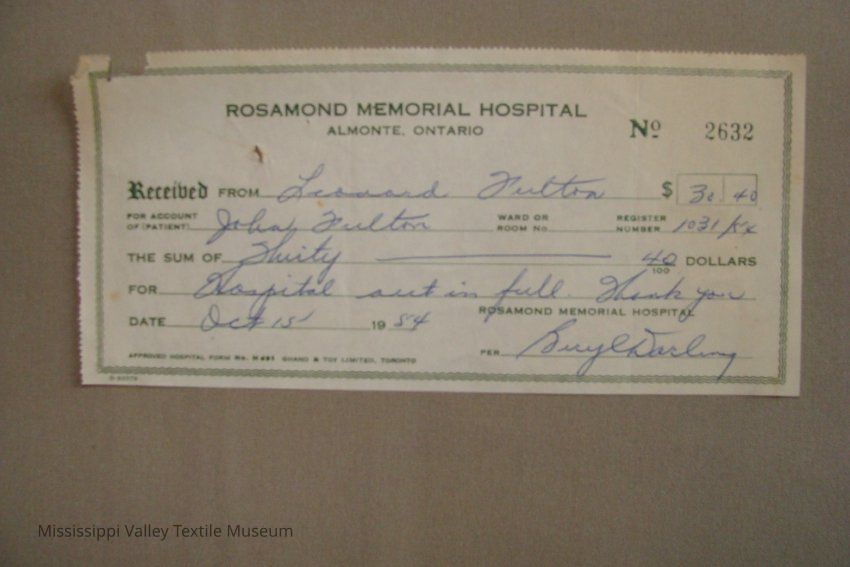 ROSAMOND MEMORIAL HOSPITAL
ALMONTE, ONTARIO
No 2632
Received FROM Leonard Fulton $ 30.40
FOR ACCOUNT OF (PATIENT) John Fulton WARD OR ROOM No. REGISTER NUMBER 1031/54
THE SUM OF Thirty 40/100 DOLLARS
FOR Hospital acct in full. Thank you
ROSAMOND MEMORIAL HOSPITAL
DATE Oct 15 1954
PER Beryl Darling
APPROVED HOSPITAL FORM No. GRAND & TOY LIMITED, TORONTO
Mississippi Valley Textile Museum